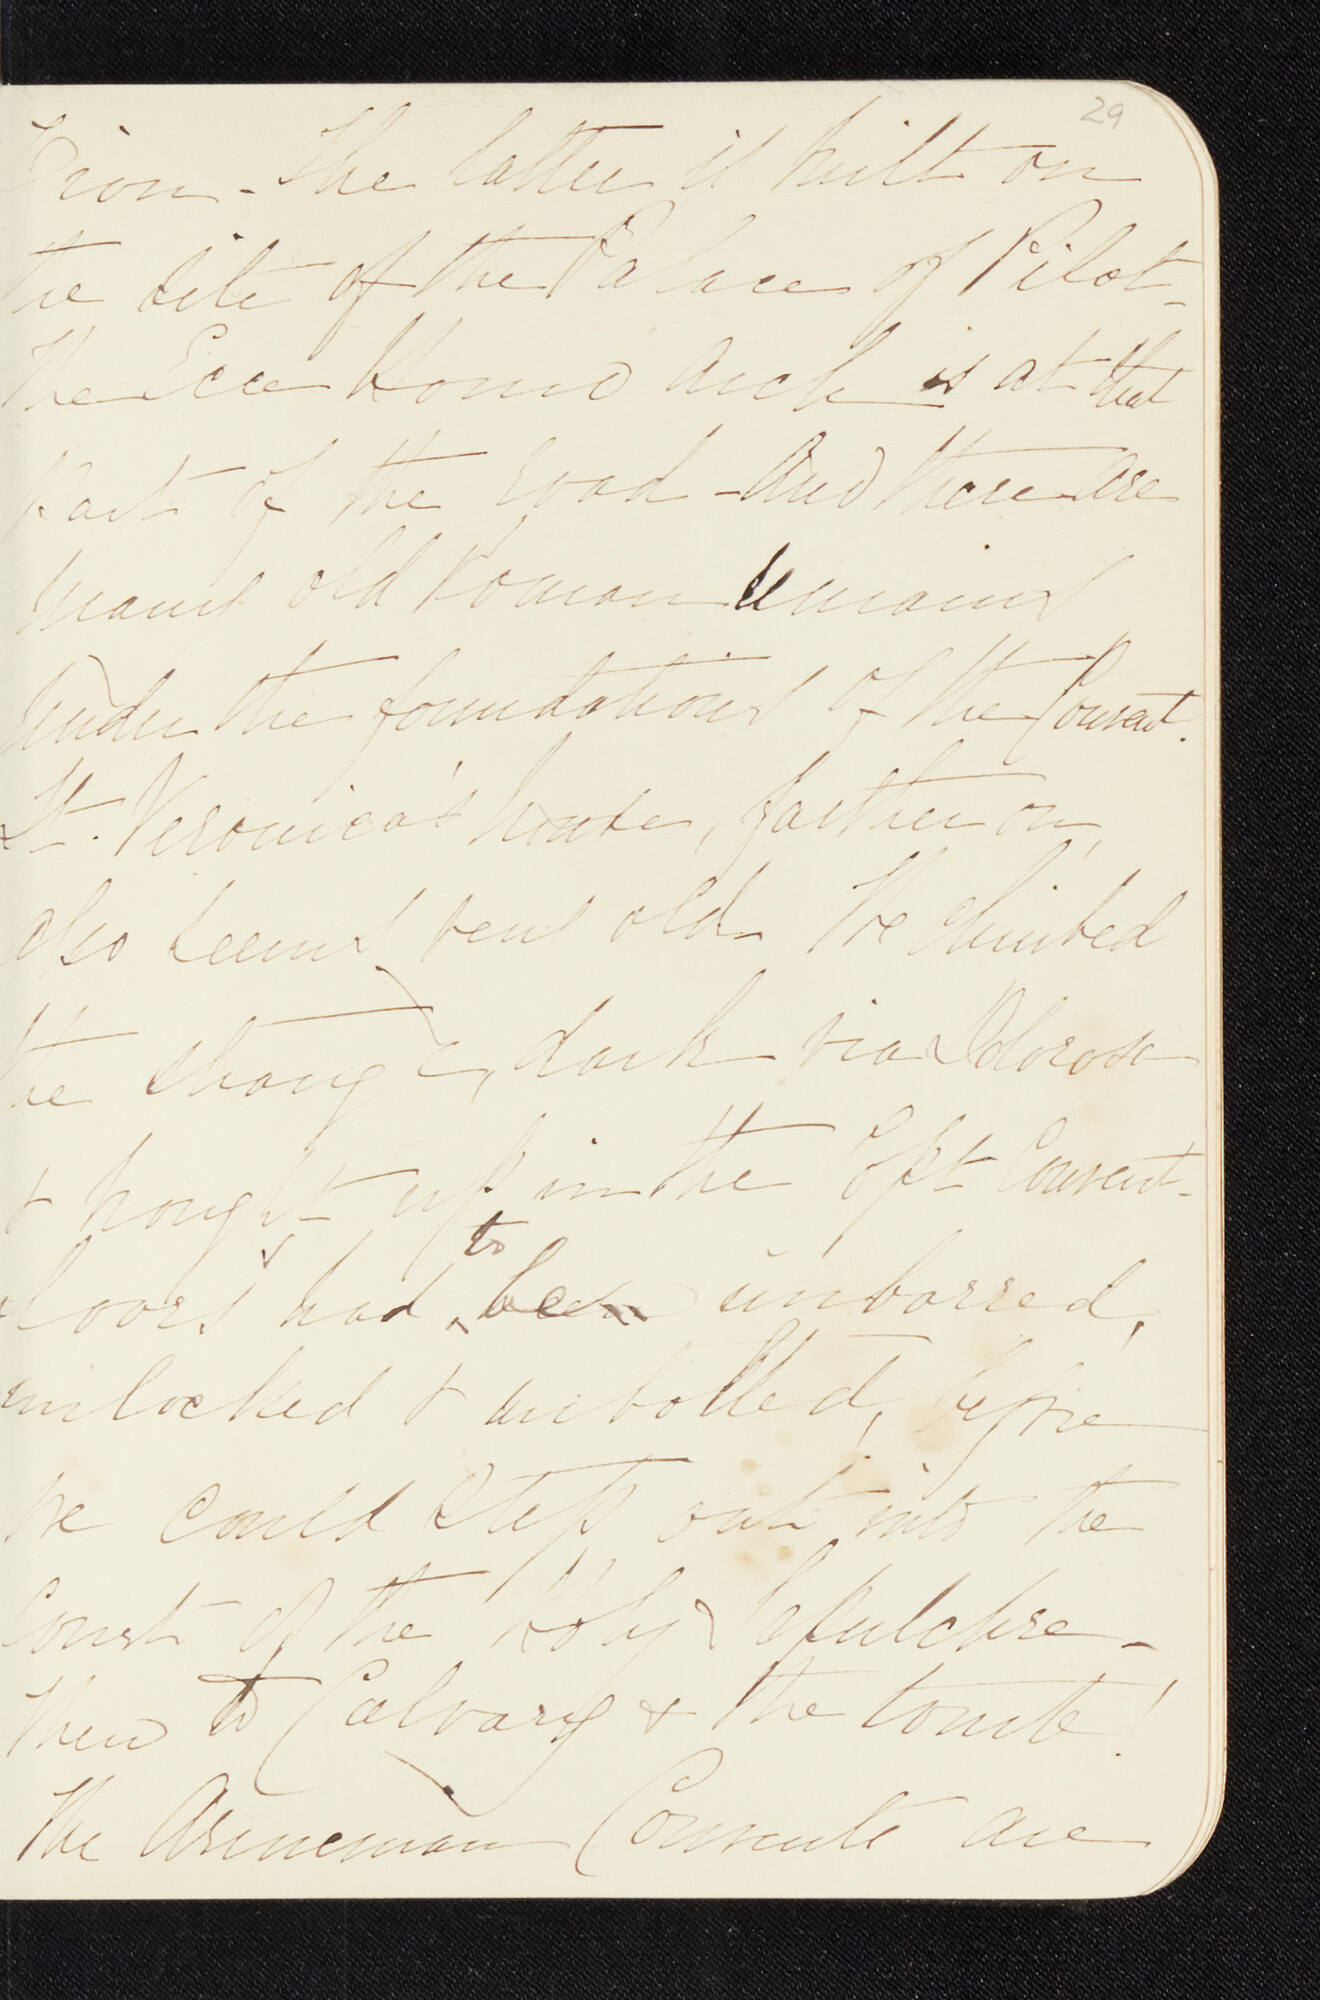 29
Zion - The latter is built on
the site of the Palace of Pilot -
The Ecce Homo Arch is at that
part of the road - And there are
many old Roman remains
under the foundations of the Convent.
St. Veronica's house, farther on,
also seems very old. We climbed
the strange, dark via Dolorosa
& brought up in the Copt Convent -
doors had to been unbarred,
unlocked & unbolted, before
we could step out into the
Court of the Holy Sepulchre -
Then to Calvary & the tomb!
The Armenian Convents are